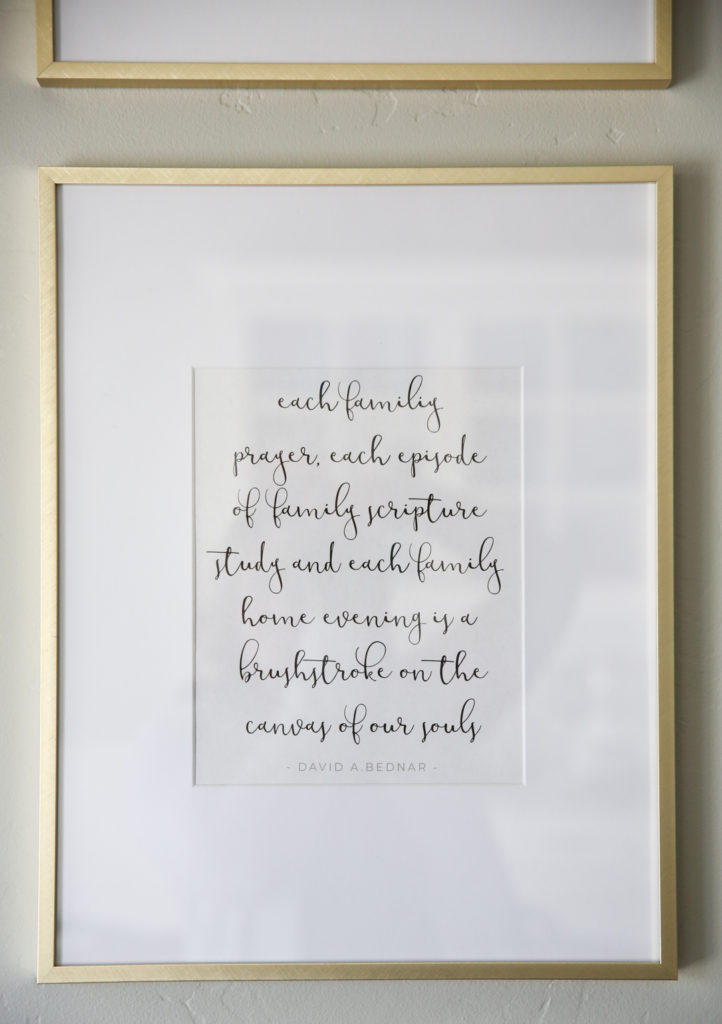 each familiy
prayer, each episode
of family scripture
study and each family
home evening is a
brushstroke on the
canvas of our souls
- DAVID A.BEDNAR -